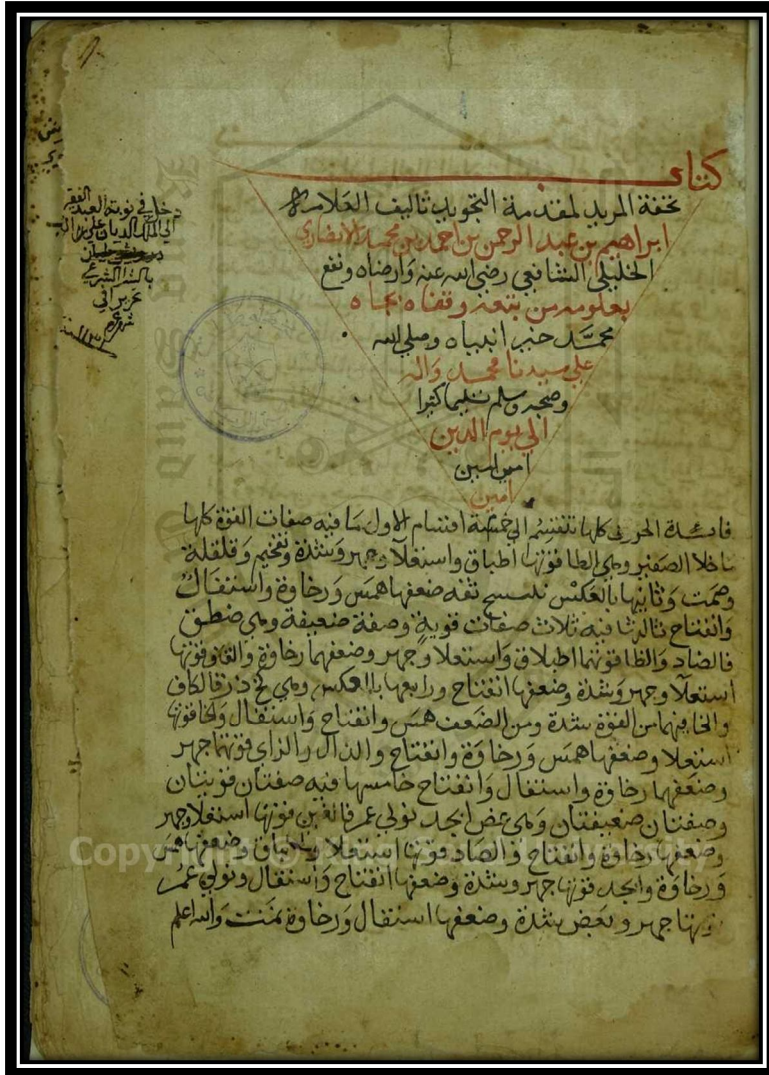 كتاب
تحفة المريد لمقدمة التجويد تاليف العلامه
ابراهيم بن عبد الرحمن بن احمد بن محمد الانصاري
الخليلي الشافعي رضي الله عنه وارضاه ونفع
بعلومه من يتعه وقفاه بجاه
محمد خير انبياه وصلى الله
على سيدنا محمد واله
وصحبه وسلم تسليما كثيرا
الى يوم الدين
امين امين
امين
دخل في نوبة العبد الفقير
الى الملك الديان علي بن
بالشرا الشرعي
فائدة الحروف كلها تنقسم الى خمسة اقسام الاول ما فيه صفات القوة كلها
ما خلا الصفير وهي الطا قوتها اطباق واستعلا وجهر وشدة وتفخيم وقلقلة
وصمت وثانيها بالعكس ضعفها همس ورخاوة واستفال
وانفتاح ثالثها فيه ثلاث صفات قوية وصفة ضعيفة وهي ضطق
فالضاد والظا قوتهما اطباق واستعلا وجهر وضعفهما رخاوة والقاف قوتها
استعلا وجهر وشدة وضعفها انفتاح ورابعها بالعكس وهي خ ذ ز ك فالكاف
والخا فيهما من القوة شدة ومن الضعف همس وانفتاح واستفال والخا قوتها
استعلا وضعفها همس ورخاوة وانفتاح والذال والزاي قوتهما جهر
وضعفهما رخاوة واستفال وانفتاح خامسها فيه صفتان قويتان
وصفتان ضعيفتان وهي غض ابجد نولي عمر فالغين قوتها استعلا وجهر
وضعفها رخاوة وانفتاح والصاد قوتها استعلا واطباق وضعفها همس
ورخاوة وابجد قوتها جهر وشدة وضعفها انفتاح واستفال ونولي عمر
قوتها جهر وبعض شدة وضعفها استفال ورخاوة تمت والله اعلم